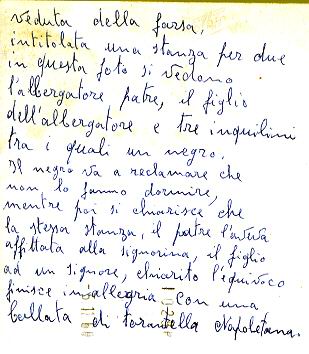 veduta della farsa,
intitolata una stanza per due
in questa foto si vedono
l'albergatore patre, il figlio
dell'albergatore e tre inquilini
tra i quali un negro.
Il negro va a reclamare che
non lo fanno dormire,
mentre poi si chiarisce che
la stessa stanza, il patre l'aveva
affittata alla signorina, il figlio
ad un signore, chiarito l'equivoco
finisce in allegria con una
ballata di tarantella Napoletana.